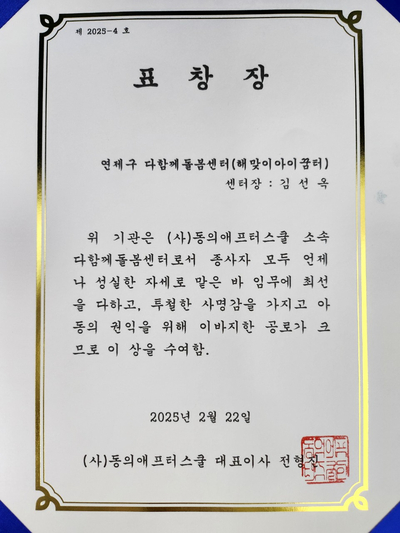 제 2025-4 호
표 창 장
연제구 다함께돌봄센터(해맞이아이꿈터)
센터장 : 김 선 옥
위 기관은 (사)동의애프터스쿨 소속
다함께돌봄센터로서 종사자 모두 언제
나 성실한 자세로 맡은 바 임무에 최선
을 다하고, 투철한 사명감을 가지고 아
동의 권익을 위해 이바지한 공로가 크
므로 이 상을 수여함.
2025년 2월 22일
(사)동의애프터스쿨 대표이사 전형진